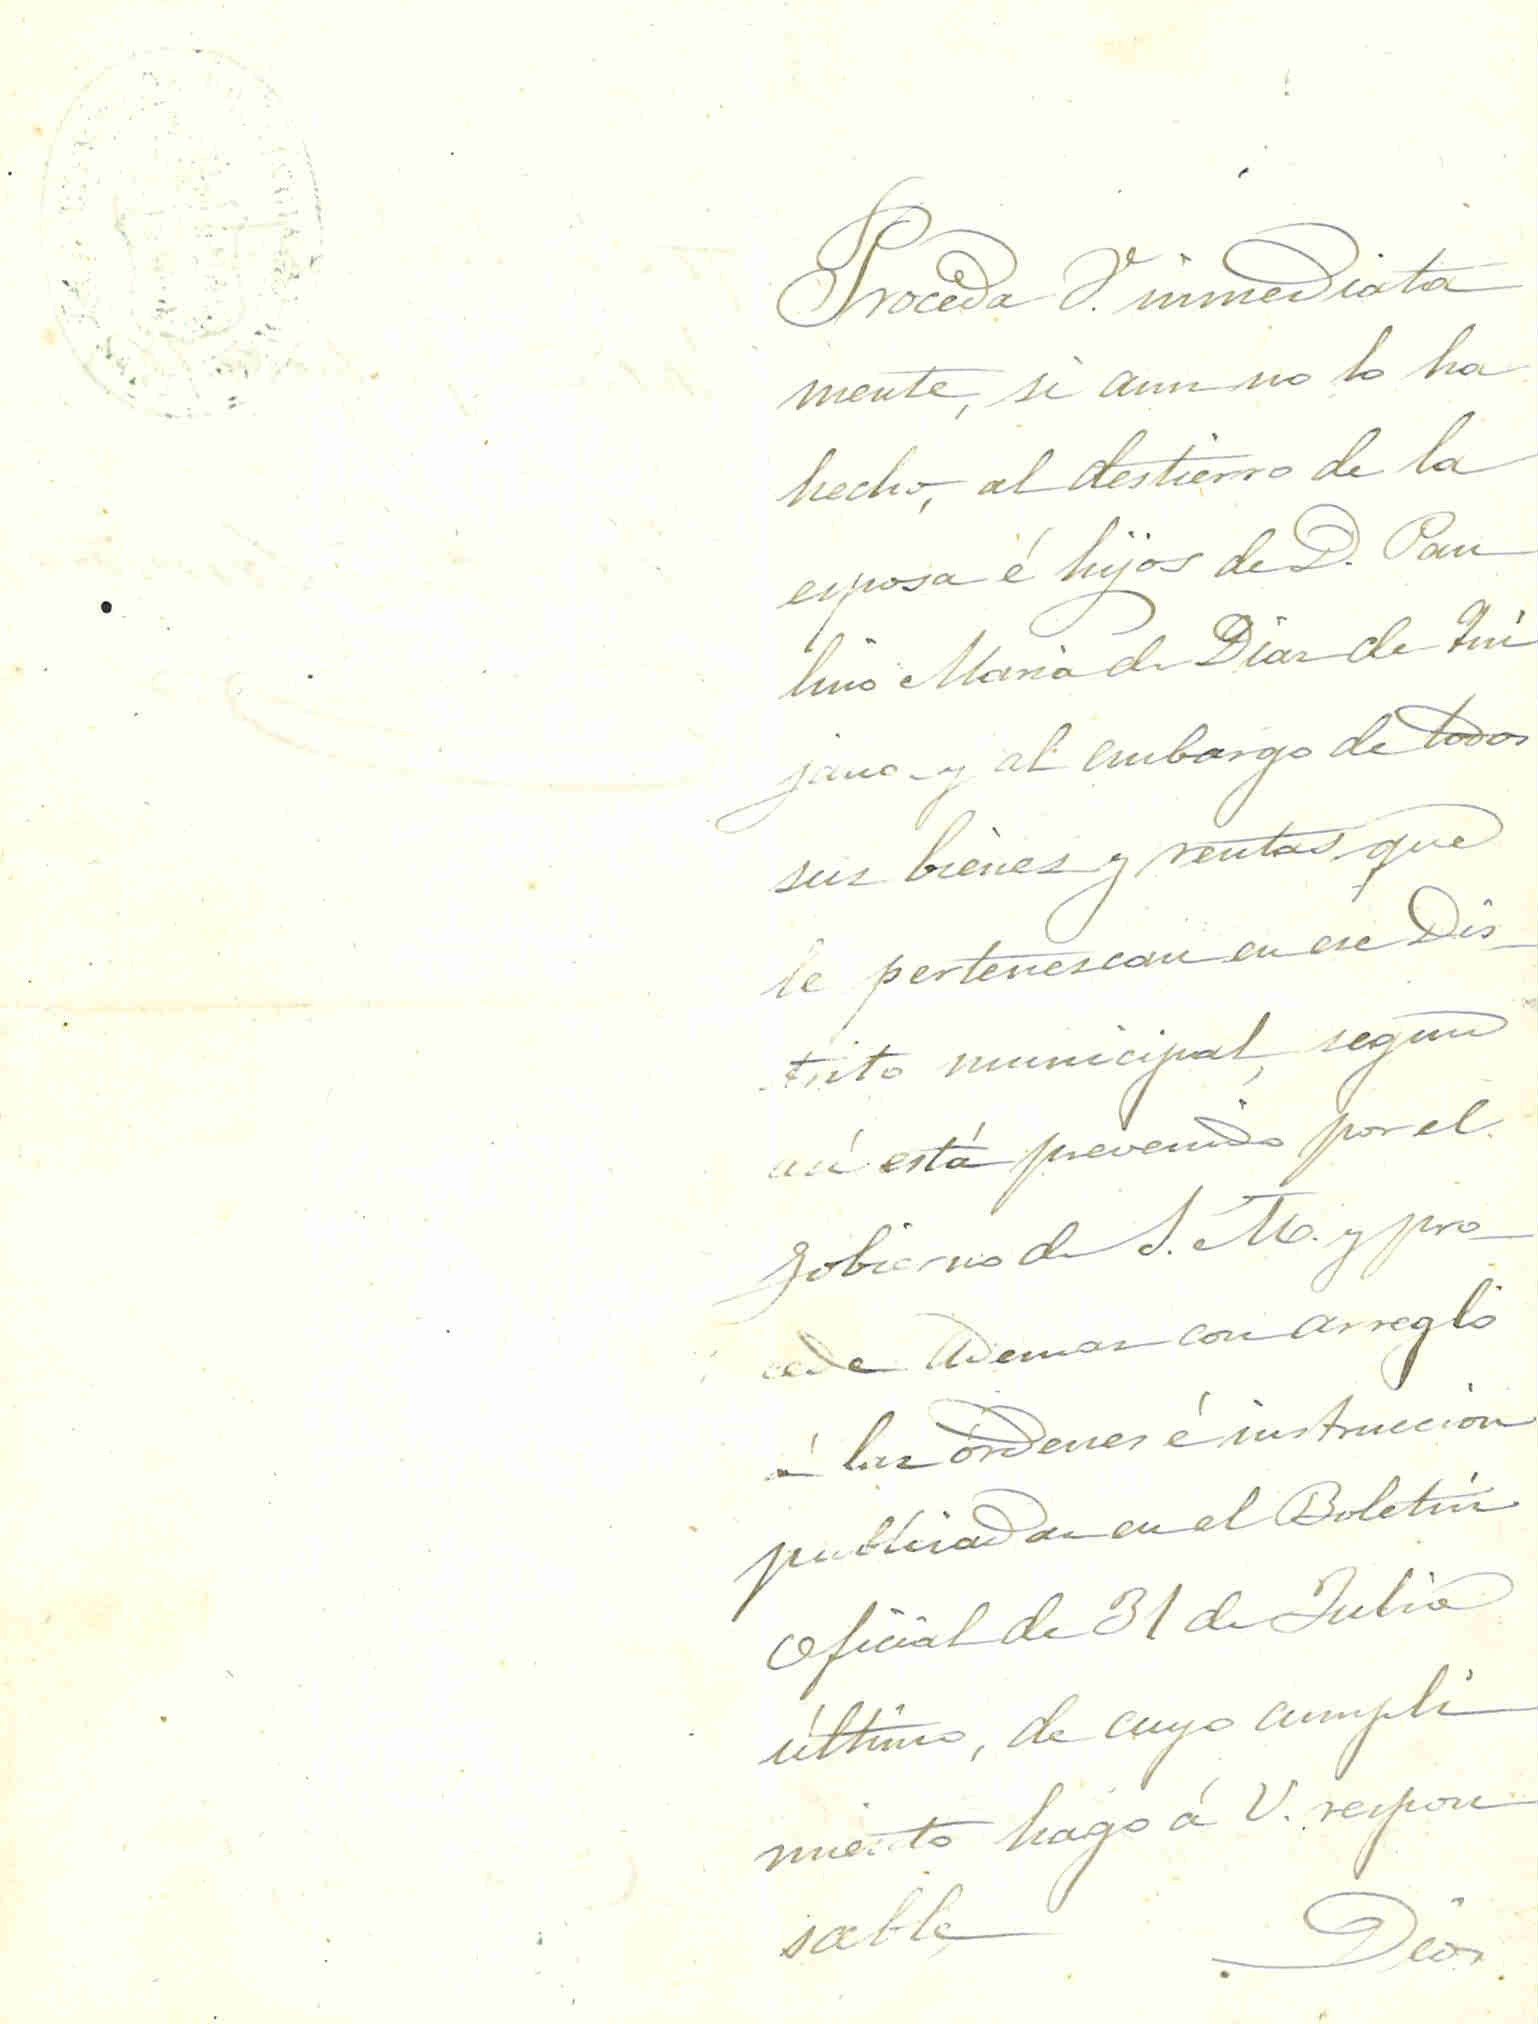 Proceda V. inmediata
mente, si aun no lo ha
hecho, al destierro de la
esposa é hijos de D. Pau
lino Maria de Diaz de Qui
jano y al embargo de todos
sus bienes y rentas que
le pertenescan en ese Dis-
trito municipal, segun
asi está prevenido por el
Gobierno de S. M. y pro-
cede ademas con arreglo
á las órdenes é instruccion
publicadas en el Boletin
oficial de 31 de Julio
último, de cuyo cumpli
miento hago á V. respon
sable,
Dios